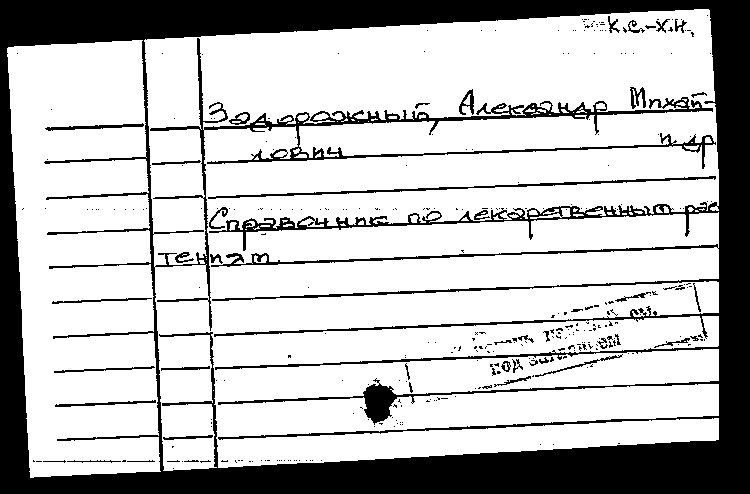 К.С.-Х.Н.
Задорожный, Александр Михай-
лович и др
Справочник по лекарственным рас
тениям
см.
под заглавием